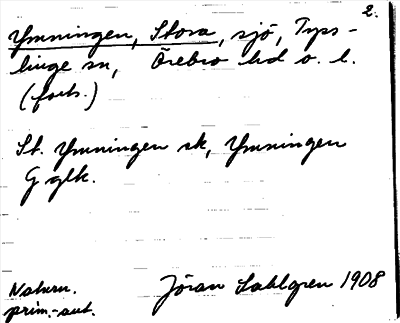 2.
Ymningen, Stora, sjö, Tyss-
linge sn, Örebro hd o. l.
(forts.)
St. Ymningen sk, Ymningen
G glk.
Naturn. Jöran Sahlgren 1908
prim.-aut.